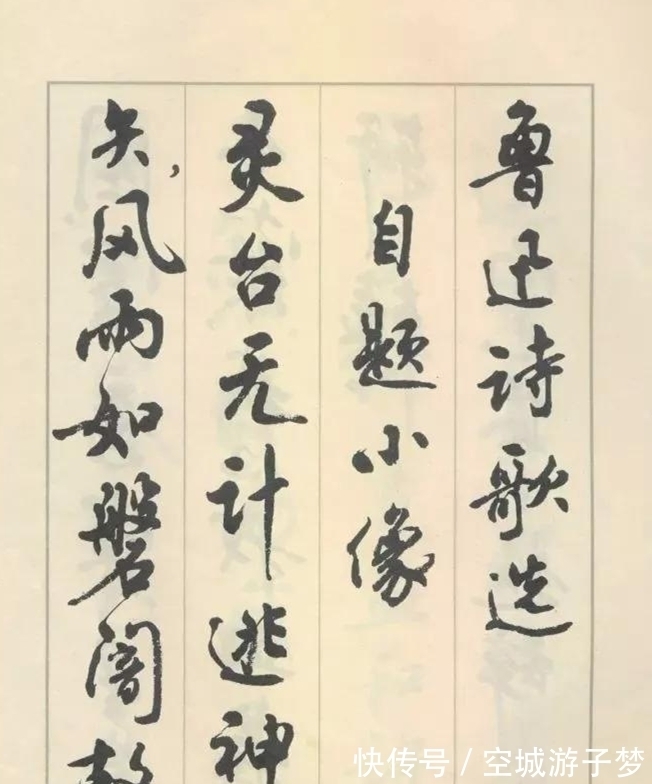 鲁迅诗歌选
自题小像
灵台无计逃神
矢，风雨如磐闇故
快传号 / 空城游子梦